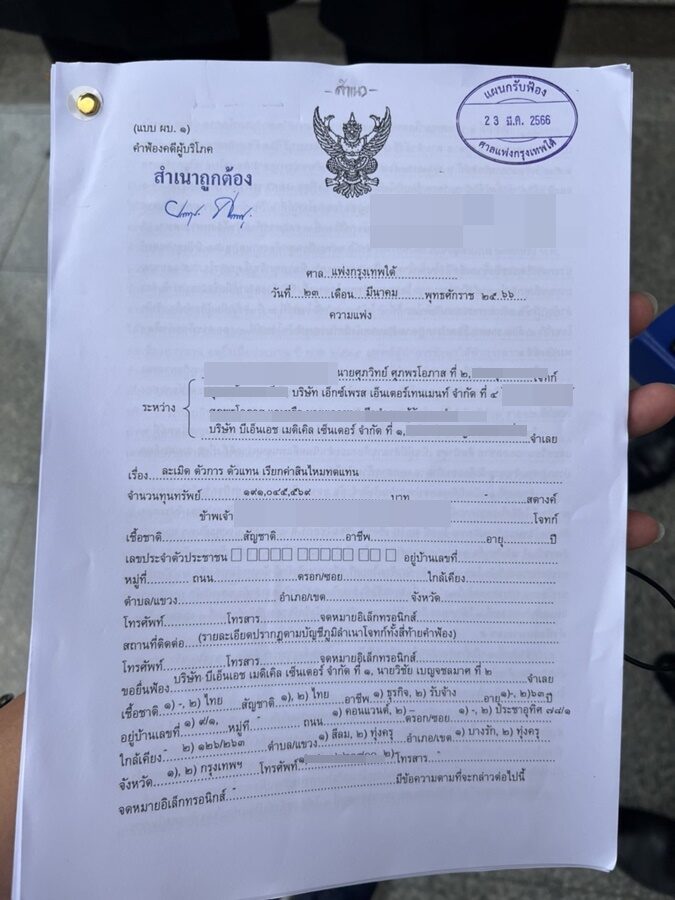 - สำเนา -
แผนกรับฟ้อง
23 มี.ค. 2566
ศาลแพ่งกรุงเทพใต้
(แบบ ผบ. ๑)
คำฟ้องคดีผู้บริโภค
สำเนาถูกต้อง
ศาล แพ่งกรุงเทพใต้
วันที่ ๒๓ เดือน มีนาคม พุทธศักราช ๒๕๖๖
ความแพ่ง
นายศุภวิทย์ ศุภพรโอภาส ที่ ๒, โจทก์
บริษัท เอ็กซ์เพรส เอ็นเตอร์เทนเมนท์ จำกัด ที่ ๔
ระหว่าง
บริษัท บีเอ็นเอช เมดิเคิล เซ็นเตอร์ จำกัด ที่ ๑,
จำเลย
เรื่อง ละเมิด ตัวการ ตัวแทน เรียกค่าสินไหมทดแทน
จำนวนทุนทรัพย์ ๑๙๑,๐๔๕,๕๖๙ บาท - สตางค์
ข้าพเจ้า โจทก์
เชื้อชาติ สัญชาติ อาชีพ อายุ ปี
เลขประจำตัวประชาชน อยู่บ้านเลขที่
หมู่ที่ ถนน ตรอก/ซอย ใกล้เคียง
ตำบล/แขวง อำเภอ/เขต จังหวัด
โทรศัพท์ โทรสาร จดหมายอิเล็กทรอนิกส์
สถานที่ติดต่อ (รายละเอียดปรากฏตามบัญชีภูมิลำเนาโจทก์ทั้งสี่ท้ายคำฟ้อง)
โทรศัพท์ โทรสาร จดหมายอิเล็กทรอนิกส์
ขอยื่นฟ้อง บริษัท บีเอ็นเอช เมดิเคิล เซ็นเตอร์ จำกัด ที่ ๑, นายวิชัย เบญจชลมาศ ที่ ๒ จำเลย
เชื้อชาติ ๑) -, ๒) ไทย สัญชาติ ๑), ๒) ไทย อาชีพ ๑) ธุรกิจ, ๒) รับจ้าง อายุ ๑)-, ๒)๖๓ ปี
อยู่บ้านเลขที่ ๑) ๙/๑, หมู่ที่ - ถนน ๑) คอนแวนต์, ๒) – ตรอก/ซอย ๑) -, ๒) ประชาอุทิศ ๗๔/๑
ใกล้เคียง - ๒) ๑๒๖/๒๖๓ ตำบล/แขวง ๑) สีลม, ๒) ทุ่งครุ อำเภอ/เขต ๑) บางรัก, ๒) ทุ่งครุ
จังหวัด ๑), ๒) กรุงเทพฯ โทรศัพท์ ๒) โทรสาร -
จดหมายอิเล็กทรอนิกส์ - มีข้อความตามที่จะกล่าวต่อไปนี้